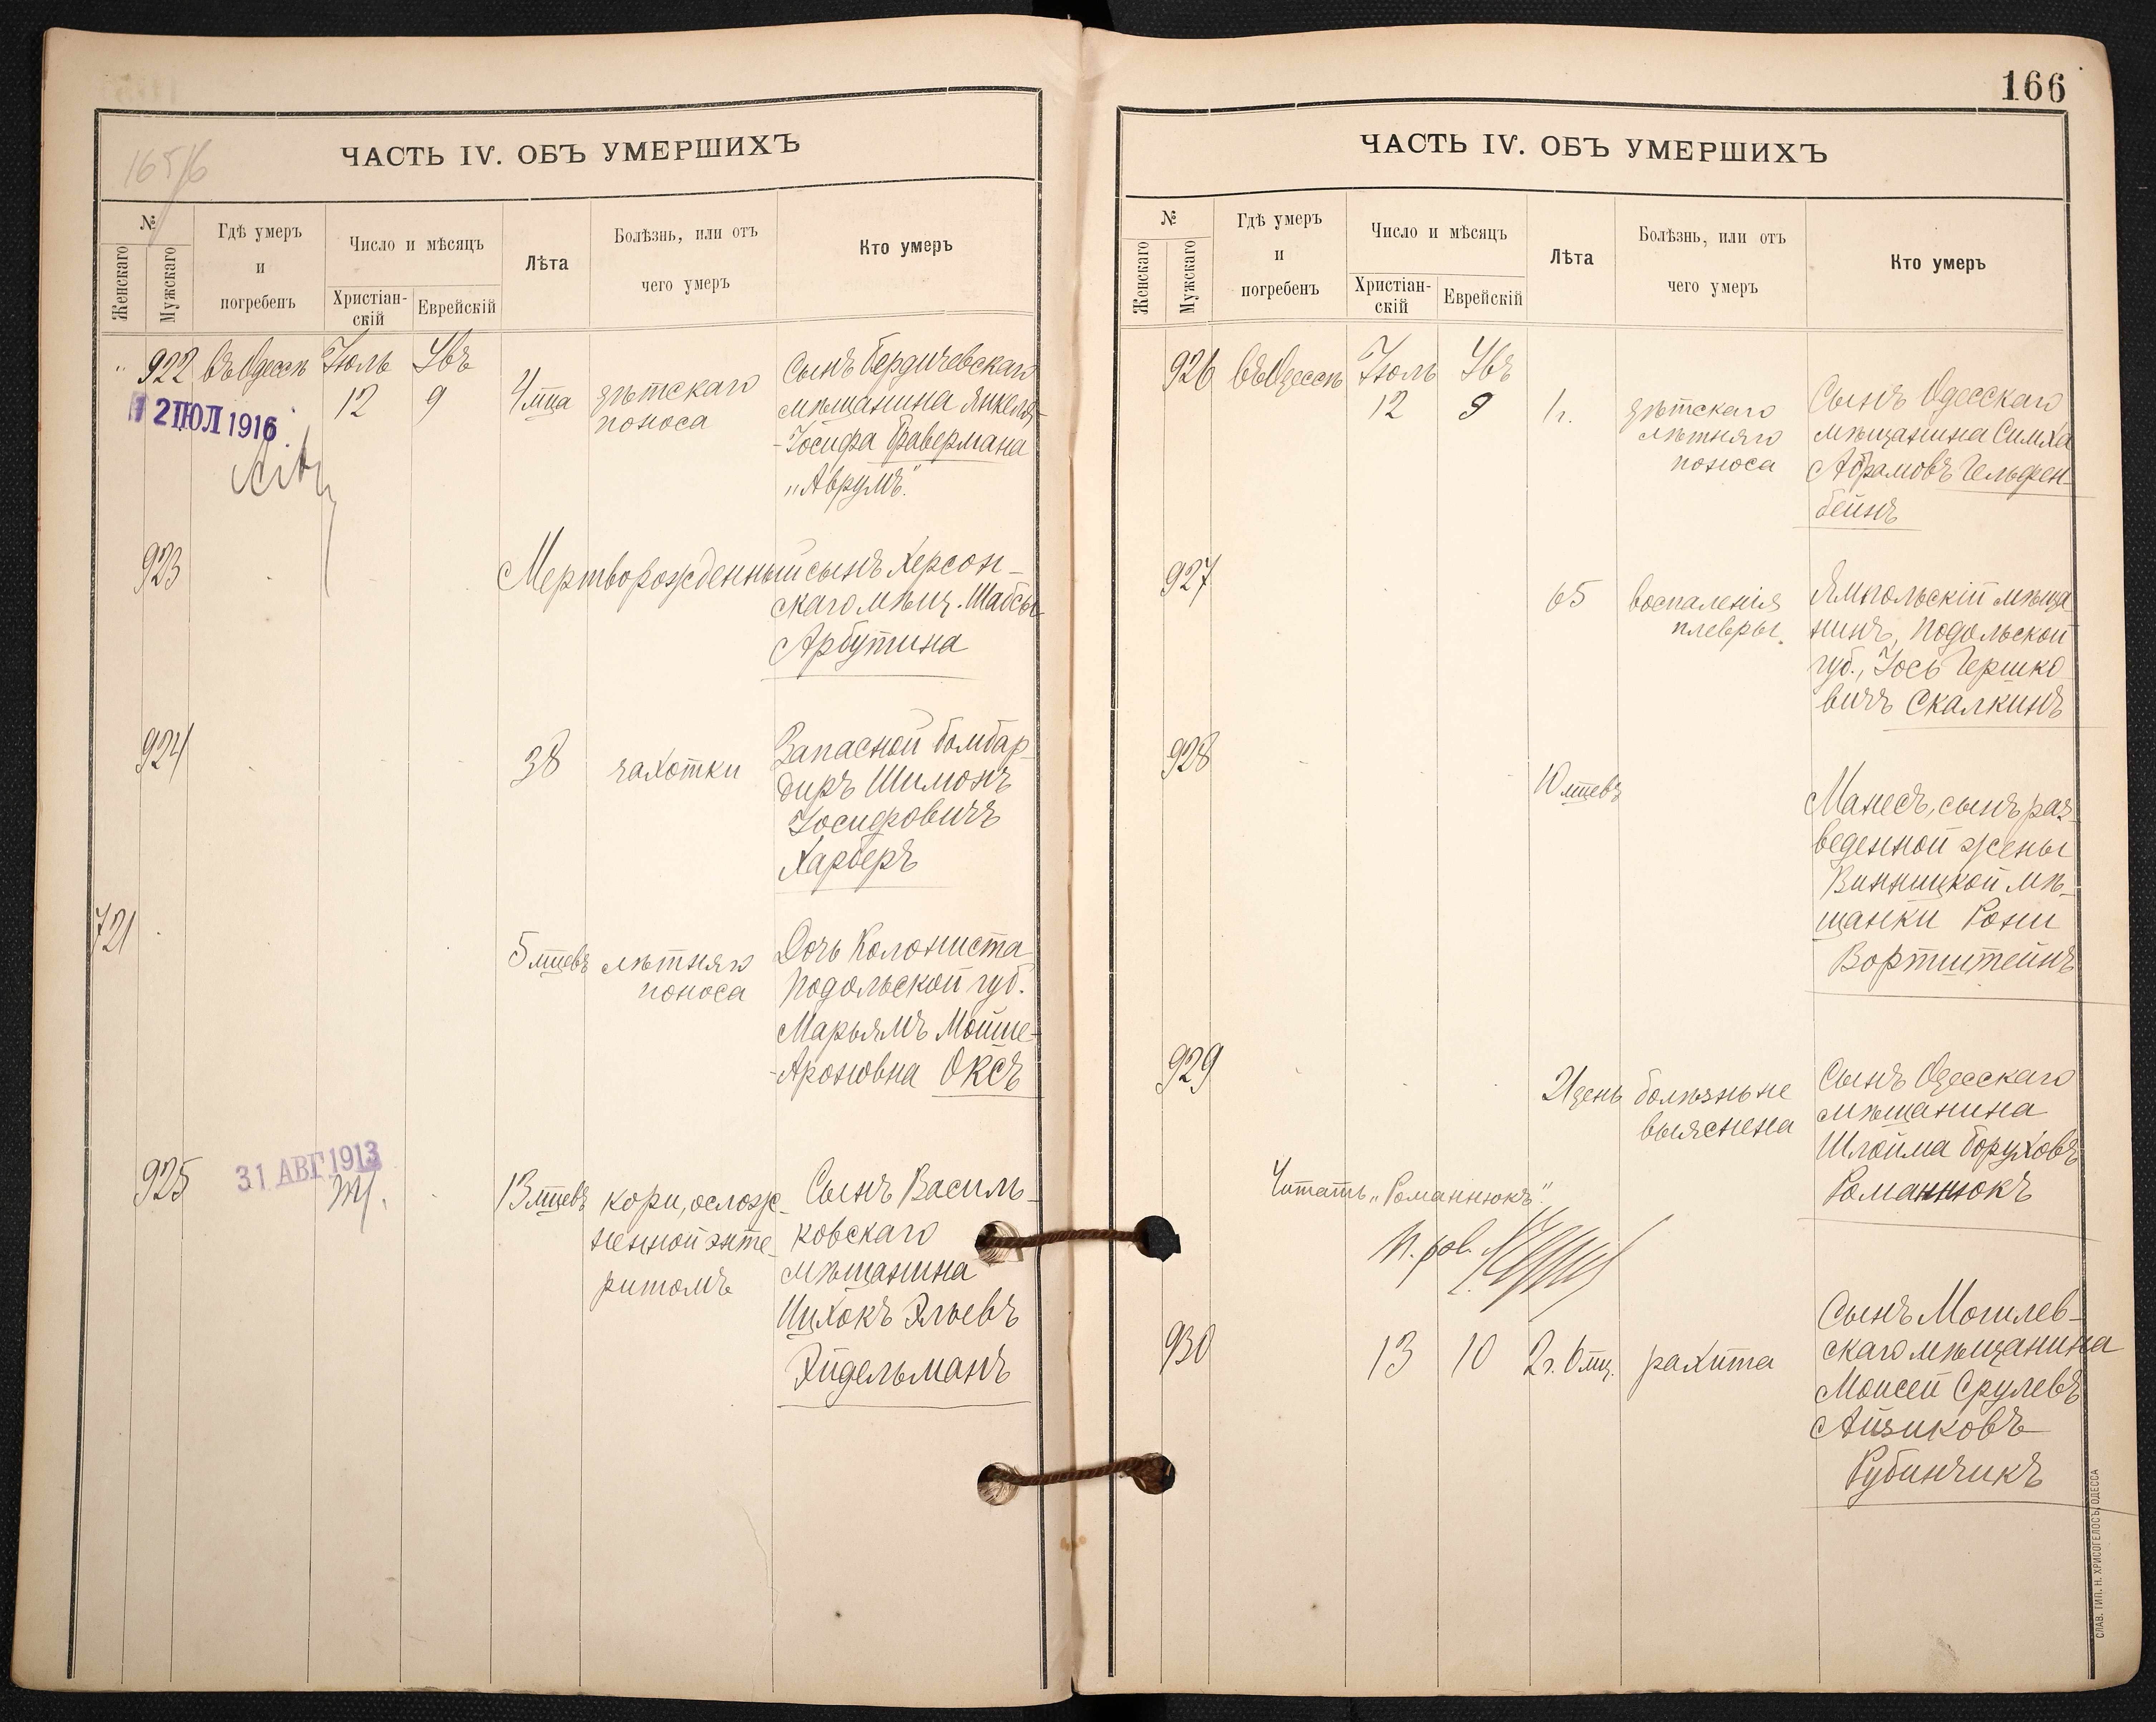 165/6
ЧАСТЬ IV. ОБЪ УМЕРШИХЪ
№
Женскаго
Мужскаго
Гдѣ умеръ
и
погребенъ
Число и мѣсяцъ
Христіан-
скій
Еврейскій
Лѣта
Болѣзнь, или отъ
чего умеръ
Кто умеръ
" 922 въ Одессѣ Іюль Увъ
12 9 4 мца дѣтскаго
поноса
Сынъ Бердичевскаго
мѣщанина Янкеля-
-Іосифа Бравермана
„Аврумъ"
12 ІЮЛ 1916
923
Мертворожденный сынъ Херсон-
скаго мѣщ. Шабсы
Арбутина
924
38 чахотки
Запасной бомбар-
диръ Шимонъ
Іосифовичъ
Харберъ
721
5 мцевъ лѣтняго
поноса
Дочь колониста
Подольской губ.
Марьямъ Мойше-
-Ароновна Оксъ
925
31 АВГ 1913
13 мцевъ кори, ослож-
ненной энте-
ритомъ
Сынъ Василь-
ковскаго
мѣщанина
Ицхокъ Эльевъ
Эйдельманъ
166
ЧАСТЬ IV. ОБЪ УМЕРШИХЪ
№
Женскаго
Мужскаго
Гдѣ умеръ
и
погребенъ
Число и мѣсяцъ
Христіан-
скій
Еврейскій
Лѣта
Болѣзнь, или отъ
чего умеръ
Кто умеръ
926 въ Одессѣ Іюль Увъ
12 9 1 г. дѣтскаго
лѣтняго
поноса
Сынъ Одесскаго
мѣщанина Симха
Абрамовъ Гельфен-
бейнъ
927
65 воспаленія
плевры.
Ямпольскій мѣща
нинъ, Подольской
губ., Іось Гершко
вичъ Скалкинъ
928
10 мцевъ
Манесъ, сынъ раз-
веденной жены
Винницкой мѣ-
щанки Розы
Вортштейнъ
929
21 день болѣзнь не
выяснена
Сынъ Одесскаго
мѣщанина
Шлойма Боруховъ
Романнюкъ
Читать „Романнюкъ".
930
13 10 2 г. 6 мц. рахита
Сынъ Могилев-
скаго мѣщанина
Моисей Срулевъ
Айзиковъ
Рубинчикъ
СЛАВ. ТИП. Н. ХРИСОГЕЛОСЪ, ОДЕССА